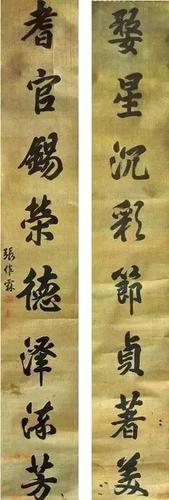 婺星沉彩節貞著美
耆官錫荣德泽流芳
張作霖